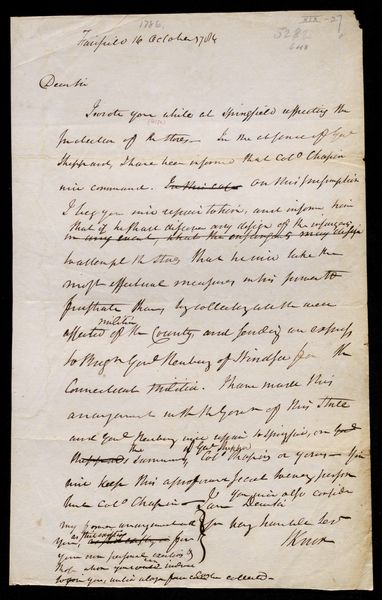 1786.
XIX-27
5282
Fairfield 16 October 1786
Dear Sir
I wrote you while at Springfield respecting the
protection of the stores — In the absence of Genl
Sheppard, I have been informed that Colo. Chapin
will command. In this case on this presumption
I beg you will repair to him, and inform him
that if he shall discover any design of the insurgents
in any event, that the insurgents may
to attempt the stores that he will take the
most effectual measures in his power to
frustrate them, by collecting all the well
affected militia of the County, and sending an express
to Brigr Genl Newbury of Windsor for the
Connecticut Militia. I have made this
arrangement with the Govr of this State
and Genl Newbury will repair to Springfield, on Genl
Sheppards the summons of Genl Sheppard Colo. Chapin or yours — You
will keep this a profound secret to every person
but Colo. Chapin —
I am Dear Sir
Your very humble Servt
HKnox
You will also consider
my former arrangement with
you, as still
your own personal exertions &
those whom you could
upon you, until a larger force collected —